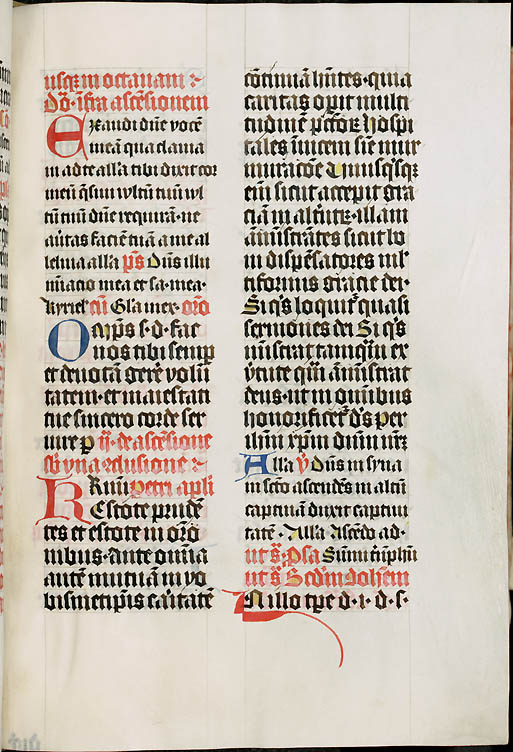 usq; in octauam ·:
Dō · infra ascēsionem
Exaudi dn̄e vocē
meā qua clama
ui ad te all'a tibi dixit cor
meū q̄siui vultū tuū vul
tū tuū dn̄e requirā · ne
au'tas faciē tuā a me al
leluia all'a p̄s Dn̄s illu
mīacio mea et sa · mea ·
kyriel' cū Gl'a inex · c̄orō
Om̄ps s · d · fac
nos tibi semp
et deuotam gerē volū
tatem · et maiestati
tue sincero corde ser
uire p
Estote prudē
tes et estote in orō
nibus · ante omīa
autē mutuā in vo
bismetip̄is caritatē
cōtinuā hn̄tes · quia
caritas opit multi
tudinē pctōrꝝ Hospi
tales inuicem sīe mur
muracōe Vnusq'sq;
eī sicut accepit gra
ciā in alt'utrꝝ · illam
amistrātes sicut bo
ni dispēsatores mul'
tiformis gracie dei ·
Si q's loquit' quasi
sermones dei Si q's
mīstrat tamq̄ ex
v'tute quā amīstrat
deus · ut in om̄ibus
honorificet' d's per
ihm̄ xp̄m dn̄m nr̄ꝝ
Alla v̄ Dn̄s in syna
in scō ascendēs in altū
captiuā duxit captiui
tatē · Alla Ascēdo ad ·
ut s̄ · P̄sa Sūmi triūphū
ut s̄ Scd'm Joh'em
In illo tpe d · i · d · s ·